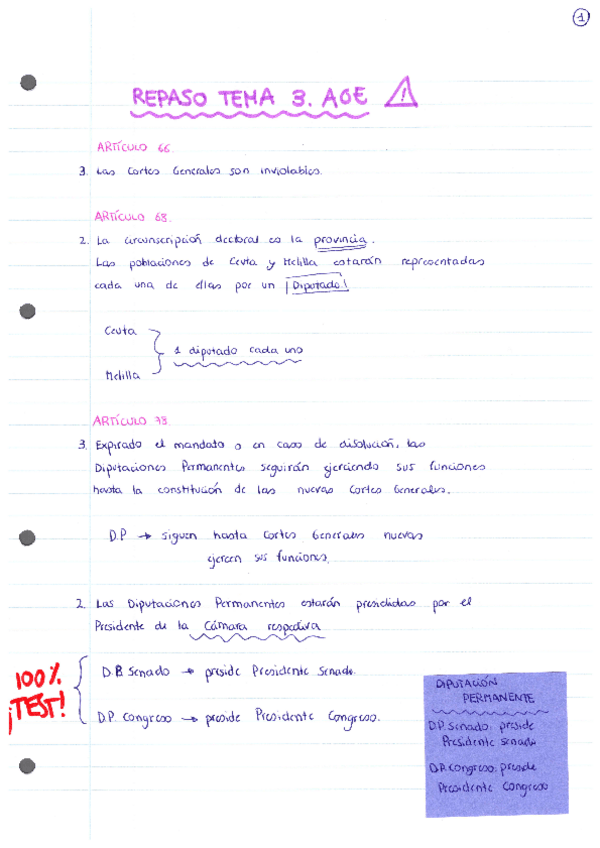 1
REPASO TEMA 3. AGE
ARTÍCULO 66.
3. Las Cortes Generales son inviolables.
ARTÍCULO 68.
2. La circunscripción electoral es la provincia.
Las poblaciones de Ceuta y Melilla estarán representadas
cada una de ellas por un Diputado
Ceuta
1 diputado cada uno
Melilla
ARTÍCULO 78.
3. Expirado el mandato o en caso de disolución, las
Diputaciones Permanentes seguirán ejerciendo sus funciones
hasta la constitución de las nuevas Cortes Generales.
D.P → siguen hasta Cortes Generales nuevas
ejercen sus funciones.
2. Las Diputaciones Permanentes estarán presididas por el
Presidente de la Cámara respectiva
100%
¡TEST!
D.P. Senado → preside Presidente Senado.
D.P. Congreso → preside Presidente Congreso.
DIPUTACIÓN
PERMANENTE
D.P. Senado: preside
Presidente Senado
D.P. Congreso: preside
Presidente Congreso